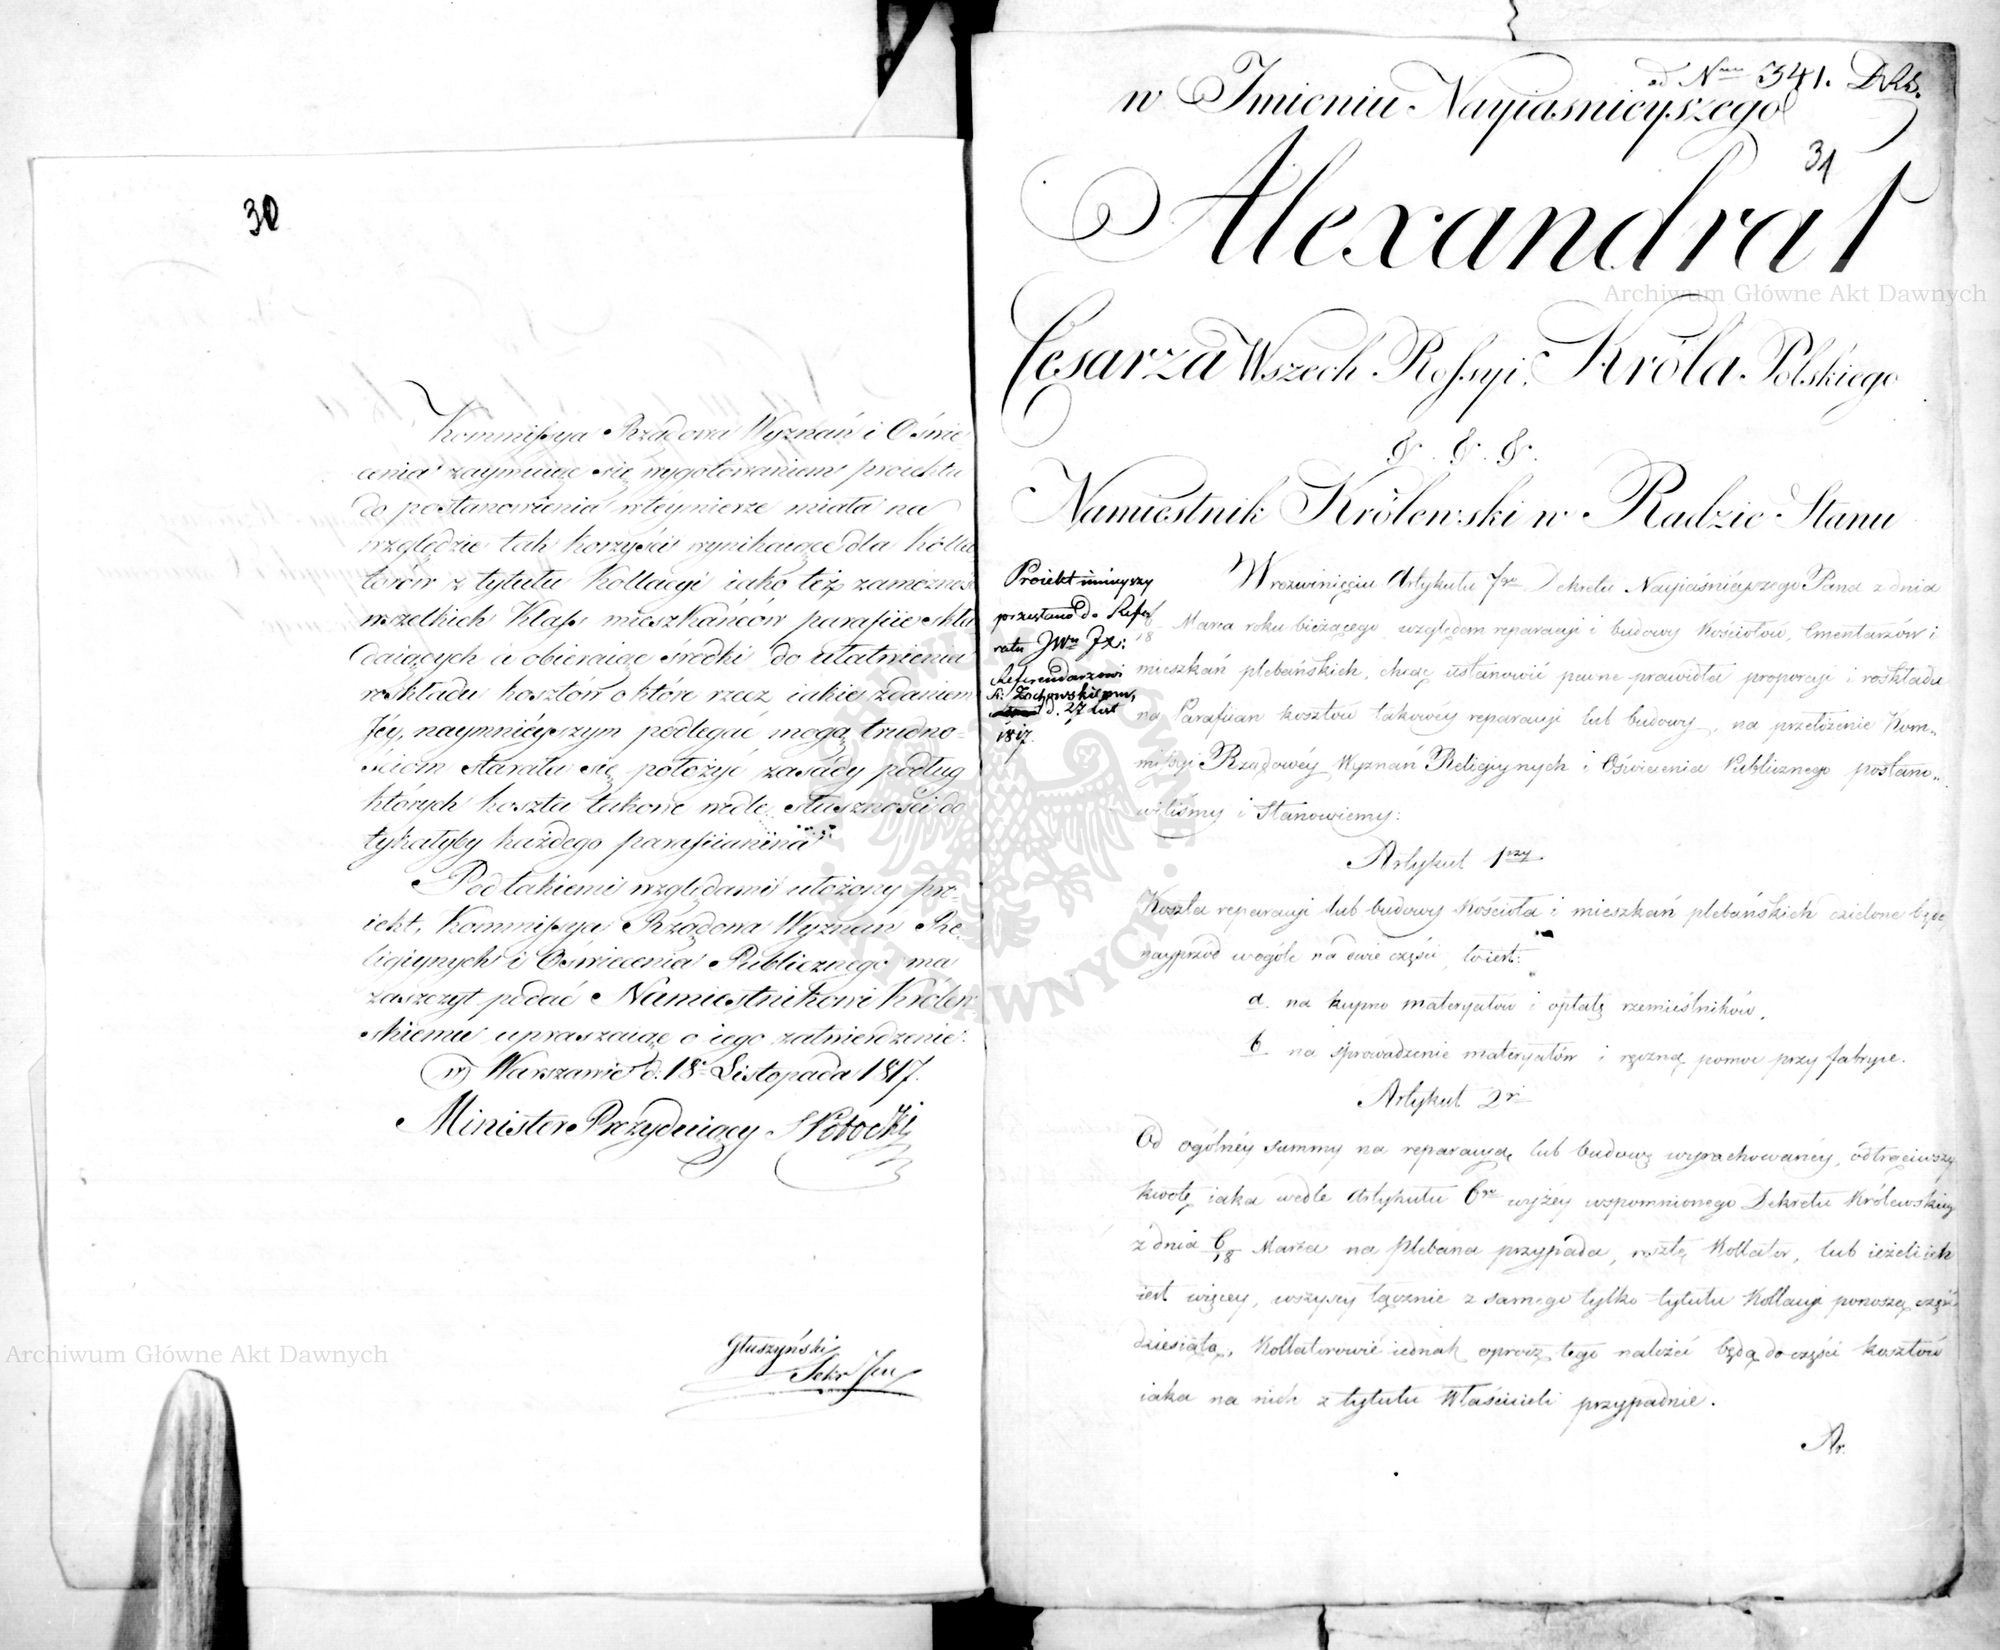 30
Kommissya Rządowa Wyznań i Oświe
cenia zaymuiąc się wygotowaniem proiektu
do postanowienia w téymierze miała na
względzie tak korzyści wynikaiące dla Kolla
torów z tytułu Kollacyi iako też zamożność
wszelkich Klass mieszkańców parafiie skła
daiących a obieraiąc środki do ułatwienia
roskładu kosztów o które rzecz iakie zdaniem
Jéy, naymniéyszym podlegać mogą trudno-
ściom starała się położyć zasady podług
których koszta takowe wedle słuszności do
tykałyby każdego parafiianina
Pod takiemi względami ułożony pro-
iekt, Kommissya Rządowa Wyznań Re-
ligiynych i Oświecenia Publicznego ma
zaszczyt podać Namiestnikowi Królew
skiemu upraszaiąc o iego zatwierdzenie.
w Warszawie d: 18 Listopada 1817.
Minister Prezyduiący S Potocki
Głuszyński
Sekr Jen
ad N 341. Dkls.
w Imieniu Nayiaśnieyszego
31
Alexandra I
Cesarza Wszech Rossyi, Króla Polskiego
&. &. &.
Namiestnik Królewski w Radzie Stanu
Proiekt ninieyszy
przesłano do Refe
ratu JW Jx:
Referendarzowi
St: Żochowskiemu,
d. 27 List
1817.
W rozwinięciu Artykułu 7go Dekretu Nayiaśnieyszego Pana z dnia
6/18 Marca roku bieżącego względem reparacyi i budowy Kościołów, Cmentarzów i
mieszkań plebańskich, chcąc ustanowić pewne prawidła proporcyi i roskładu
na Parafiian kosztów takowéy reparacyi lub budowy, na przełożenie Kom-
missyi Rządowéy Wyznań Religiynych i Oświecenia Publicznego postano-
wiliśmy i Stanowiemy:
Artykuł 1szy
Koszta reparacyi lub budowy Kościoła i mieszkań plebańskich dzielone będą
nayprzód w ogóle na dwie części, to iest:
a. na kupno materyałów i opłatę rzemieślników.
b. na sprowadzenie materyałów i ręczną pomoc przy fabryce.
Artykuł 2i
Od ogólnéy summy na reparacyą lub budowę wyrachowanéy, odtrąciwszy
kwotę iaka wedle Artykułu 6go wyżéy wspomnionego Dekretu Królewskiego
z dnia 6/18 Marca na plebana przypada, resztę Kollator, lub ieżeli ich
iest więcéy, wszyscy łącznie z samego tylko tytułu Kollacyi ponoszą część
dziesiątą, Kollatorowie iednak oprócz tego należeć będą do części kosztów
iaka na nich z tytułu Właścicieli przypadnie.
Ar.
Archiwum Główne Akt Dawnych
Archiwum Główne Akt Dawnych